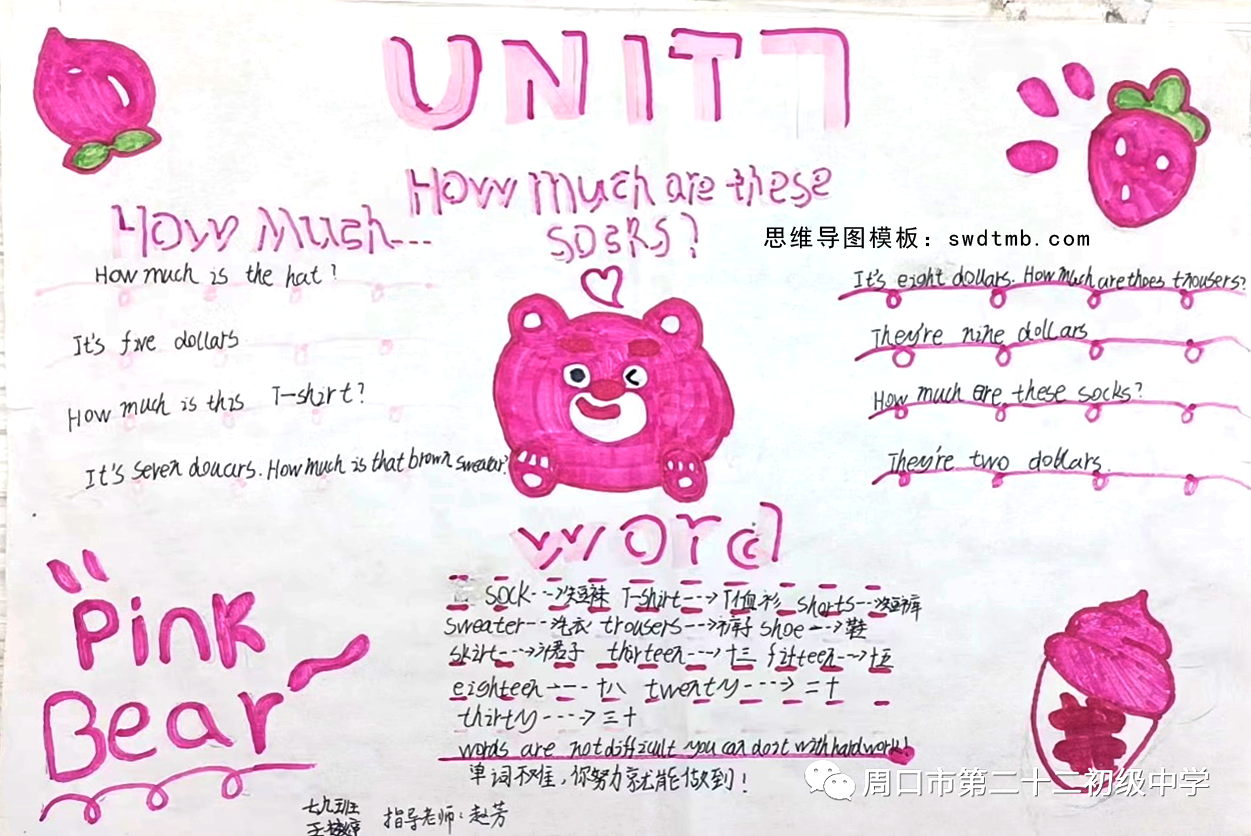 UNIT7
How much are these
SOCKS?
How Much...
思维导图模板：swdtmb.com
How much is the hat?
It's five dollars
How much is this T-shirt?
It's seven doucurs. How much is that brown sweater?
It's eight douars. How much are thoes trousers?
They're nine dollars
How much are these socks?
They're two dollars.
word
sock--->短袜 T-shirt--->T恤衫 shorts--->短裤
sweater--->毛衣 trousers--->裤子 shoe--->鞋
skirt--->裙子 thirteen--->十三 fifteen--->十五
eighteen----十八 twenty---->二十
thirty---->三十
words are not difficult you can do it with hard work!
单词不难，你努力就能做到！
Pink
Bear
七九班
指导老师：赵芳
周口市第二十二初级中学